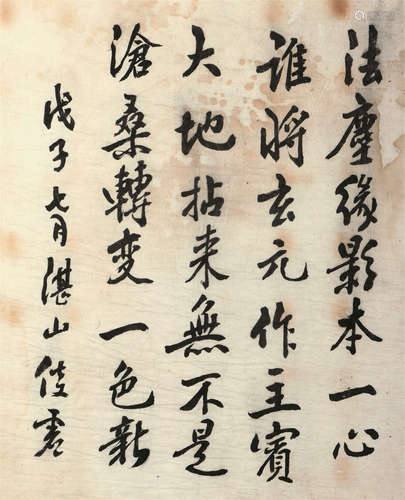 法塵緣影本一心
誰將玄元作主賓
大地拈来無不是
滄桑轉变一色新
戊子七月湛山倓虚